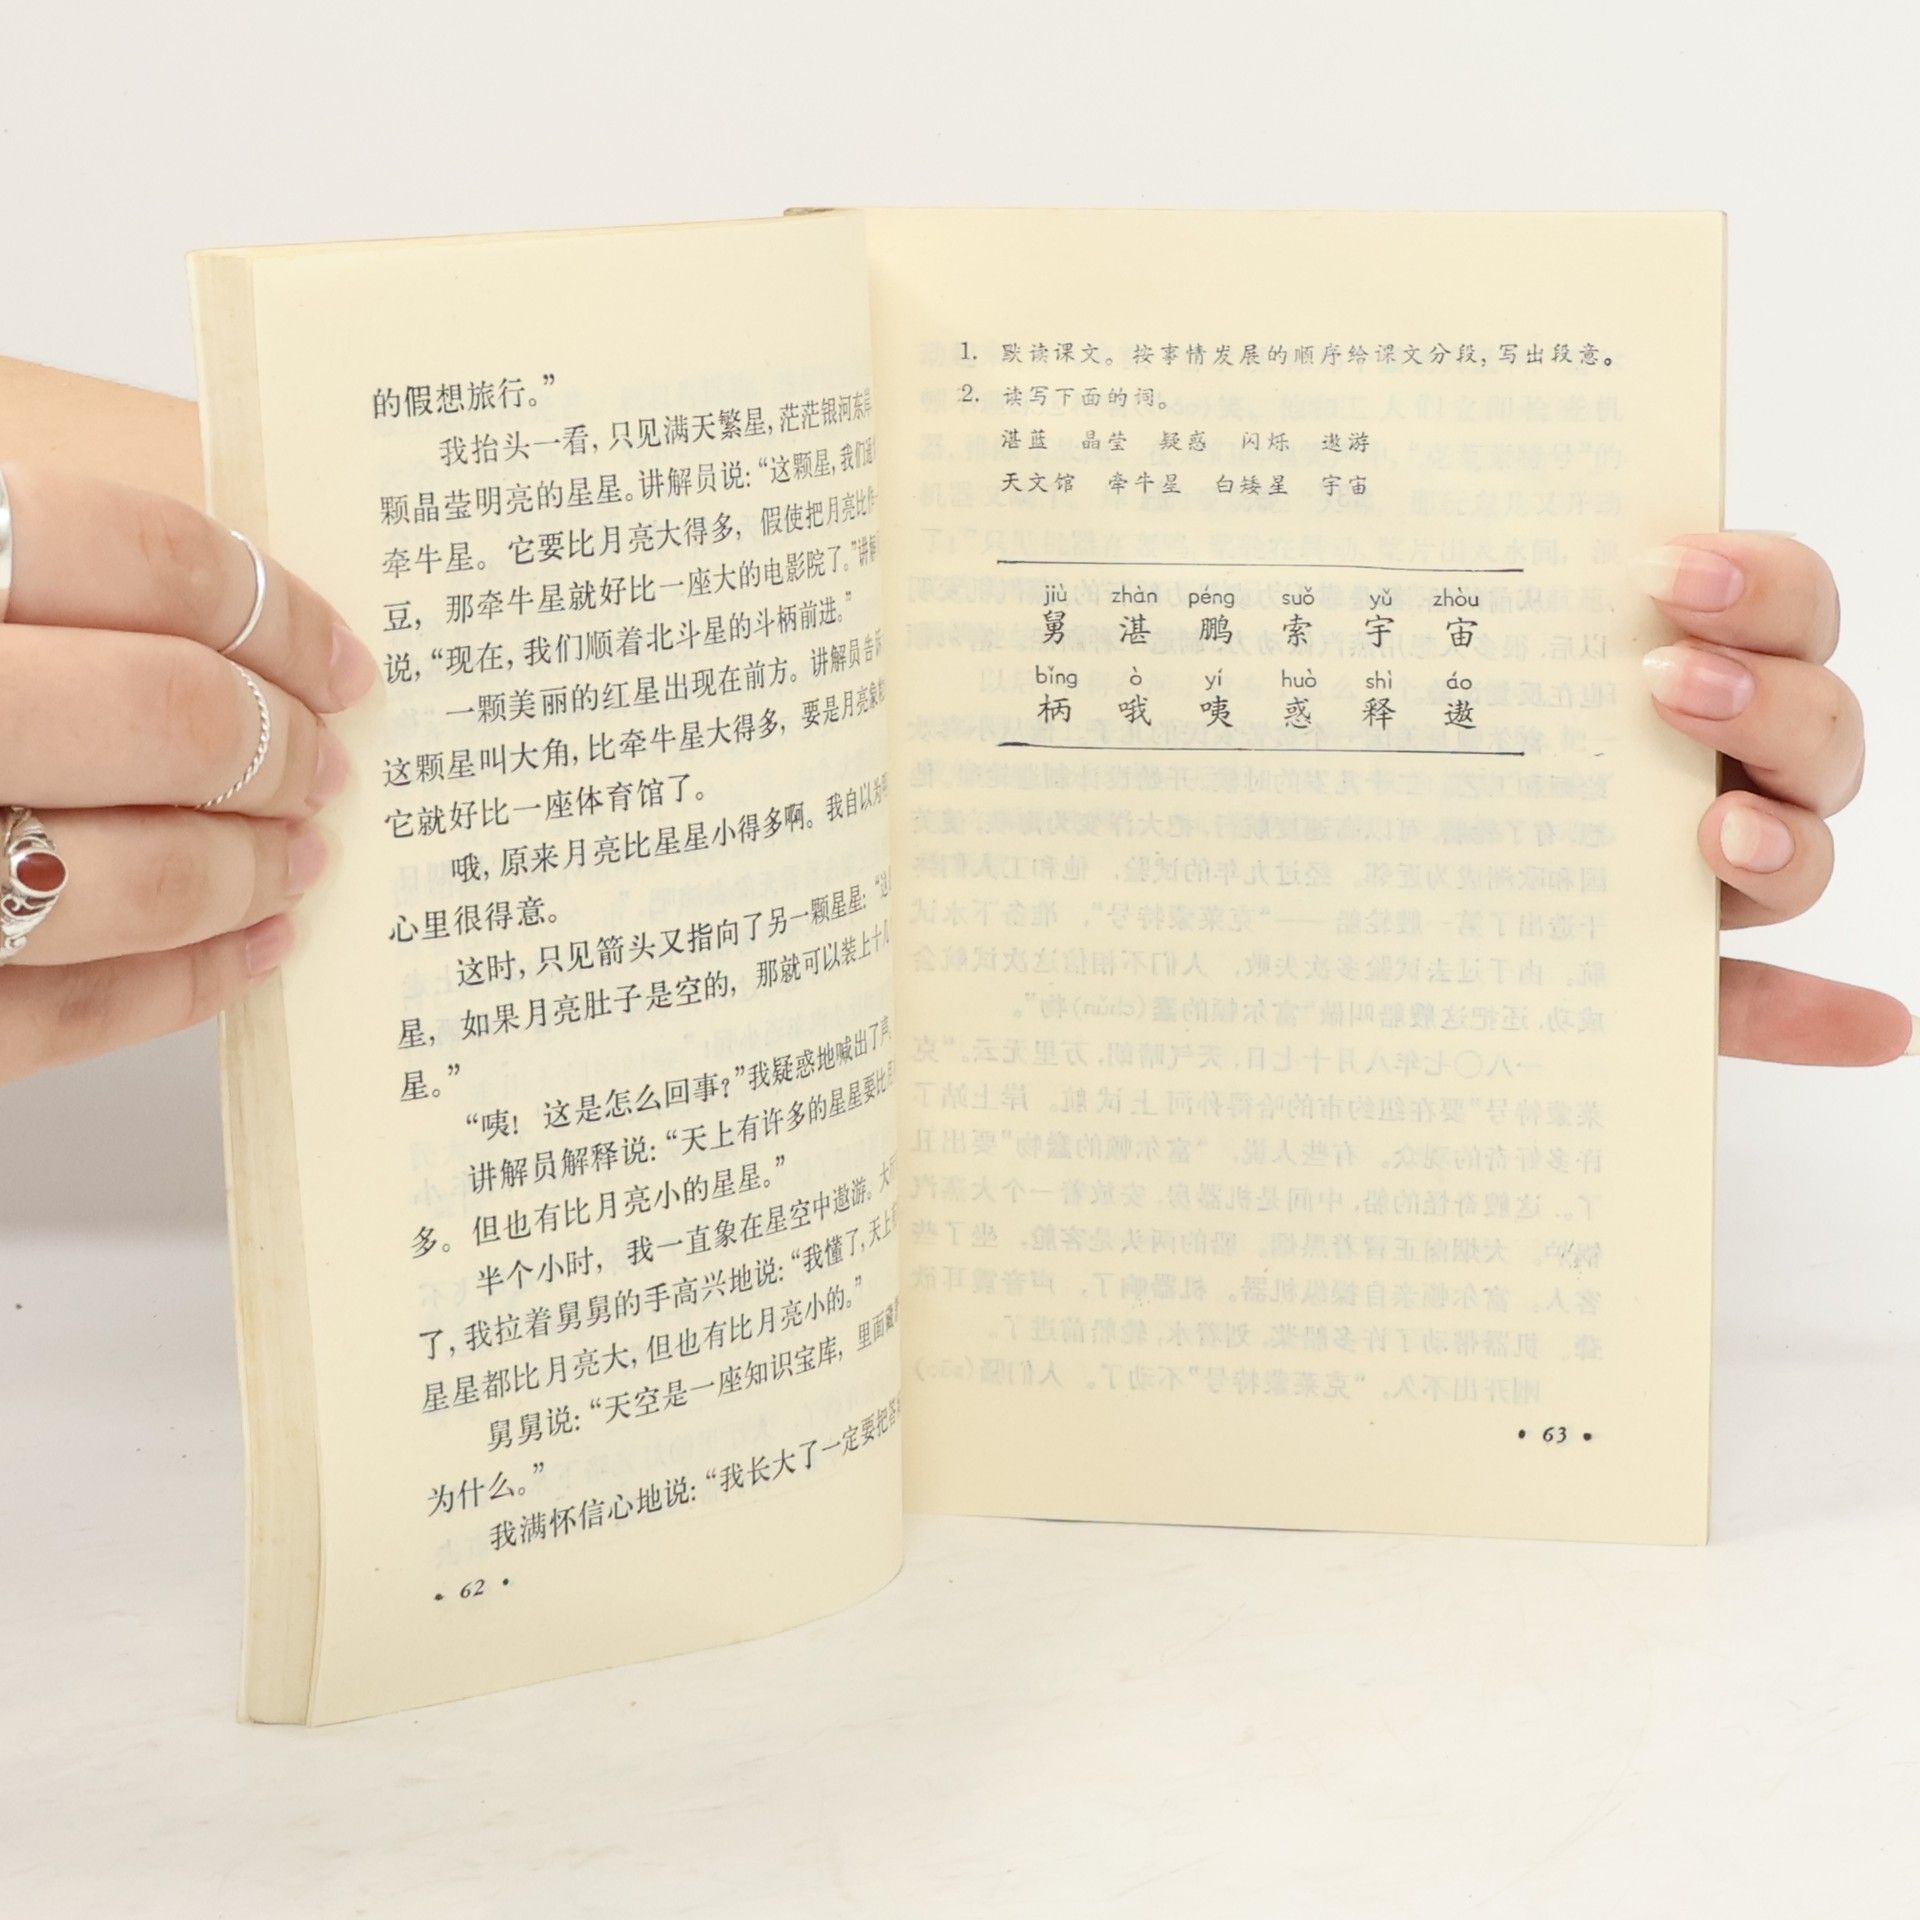 的假想旅行。”
我抬头一看，只见满天繁星，茫茫银河东岸
颗晶莹明亮的星星。讲解员说：“这颗星，我们通
牵牛星。它要比月亮大得多，假使把月亮比作
豆，那牵牛星就好比一座大的电影院了。”讲解
说，“现在，我们顺着北斗星的斗柄前进。”
一颗美丽的红星出现在前方。讲解员告诉
这颗星叫大角，比牵牛星大得多，要是月亮象
它就好比一座体育馆了。
哦，原来月亮比星星小得多啊。我自以为
心里很得意。
这时，只见箭头又指向了另一颗星星：“这
星，如果月亮肚子是空的，那就可以装上十几
星。”
“咦！这是怎么回事？”我疑惑地喊出了声
讲解员解释说：“天上有许多的星星要比月
多。但也有比月亮小的星星。”
半个小时，我一直象在星空中遨游。大
了，我拉着舅舅的手高兴地说：“我懂了，天上
星星都比月亮大，但也有比月亮小的。”
舅舅说：“天空是一座知识宝库，里面藏
为什么。”
我满怀信心地说：“我长大了一定要把答
• 62 •
1. 默读课文。按事情发展的顺序给课文分段，写出段意。
2. 读写下面的词。
湛蓝 晶莹 疑惑 闪烁 遨游
天文馆 牵牛星 白矮星 宇宙
jiù zhàn péng suǒ yǔ zhòu
舅 湛 鹏 索 宇 宙
bǐng ò yí huò shì áo
柄 哦 咦 惑 释 遨
• 63 •